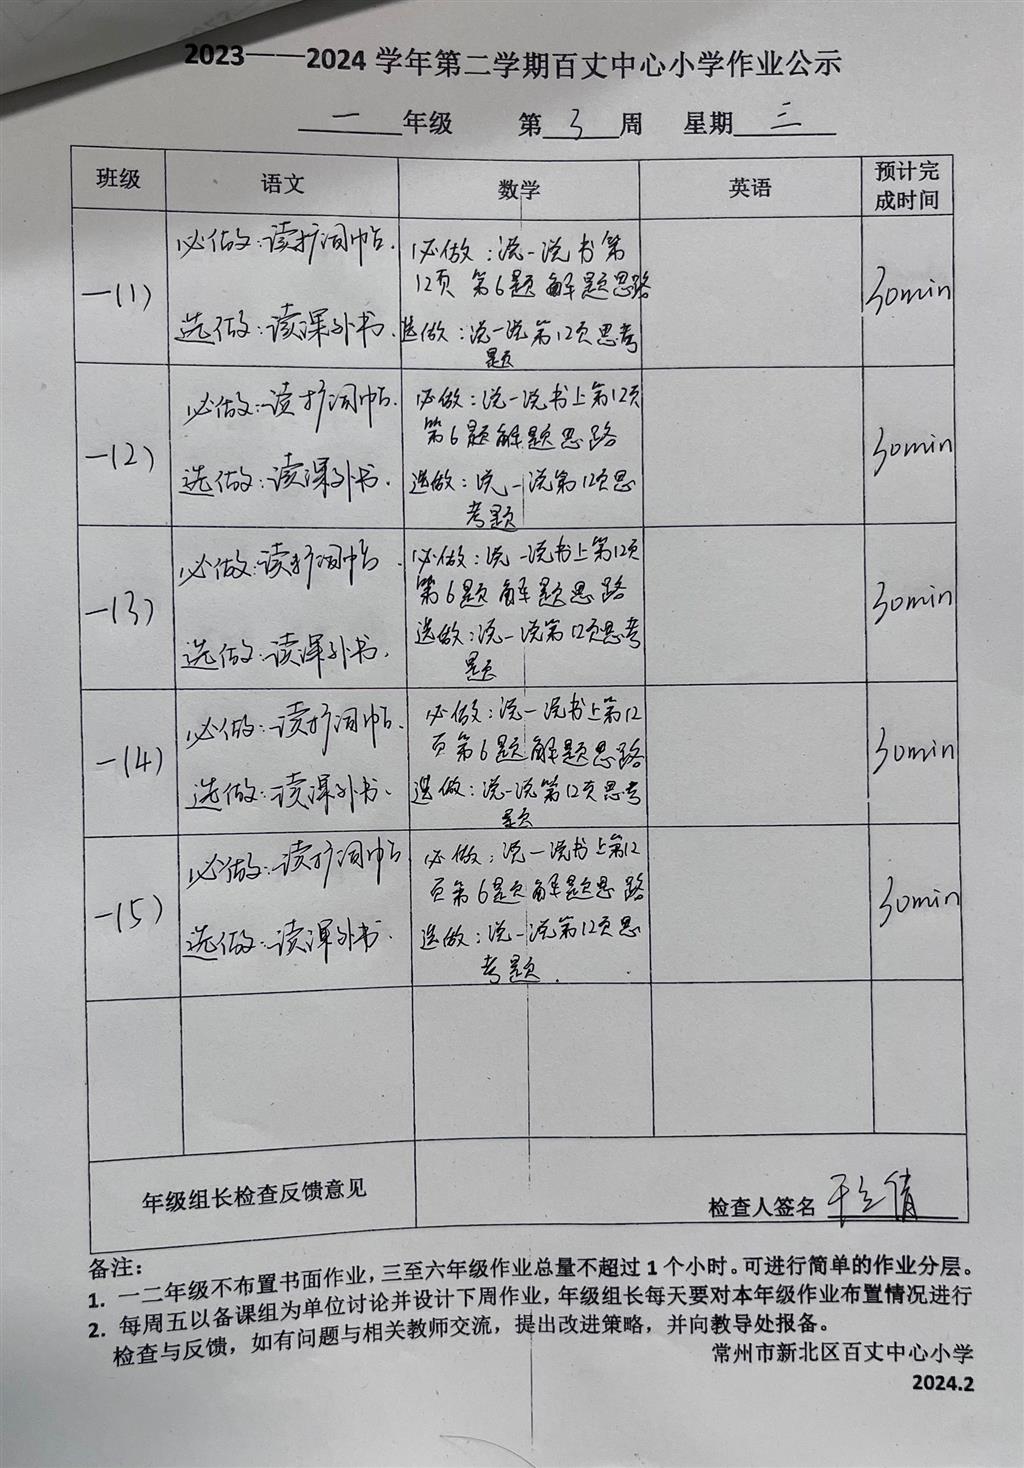 2023——2024 学年第二学期百丈中心小学作业公示
一 年级 第 3 周 星期 三
班级 语文 数学 英语 预计完成时间
一(1)
必做:读扩词帖.
选做:读课外书.
必做:说一说书第
12页 第6题 解题思路
选做:说一说第12页思考
题
30min
一(2)
必做:读扩词帖.
选做:读课外书.
必做:说一说书上第12页
第6题解题思路
选做:说一说第12页思
考题
30min
一(3)
必做:读扩词帖
选做:读课外书.
必做:说一说书上第12页
第6题 解题思路
选做:说一说第12页思考
题
30min
一(4)
必做:读扩词帖.
选做:读课外书.
必做:说一说书上第12
页第6题解题思路
选做:说一说第12页思考
题
30min
一(5)
必做:读扩词帖
选做:读课外书.
必做:说一说书上第12
页第6题解题思路
选做:说一说第12页思
考题.
30min
年级组长检查反馈意见
检查人签名
备注:
1. 一二年级不布置书面作业,三至六年级作业总量不超过 1 个小时。可进行简单的作业分层。
2. 每周五以备课组为单位讨论并设计下周作业,年级组长每天要对本年级作业布置情况进行
检查与反馈,如有问题与相关教师交流,提出改进策略,并向教导处报备。
常州市新北区百丈中心小学
2024.2